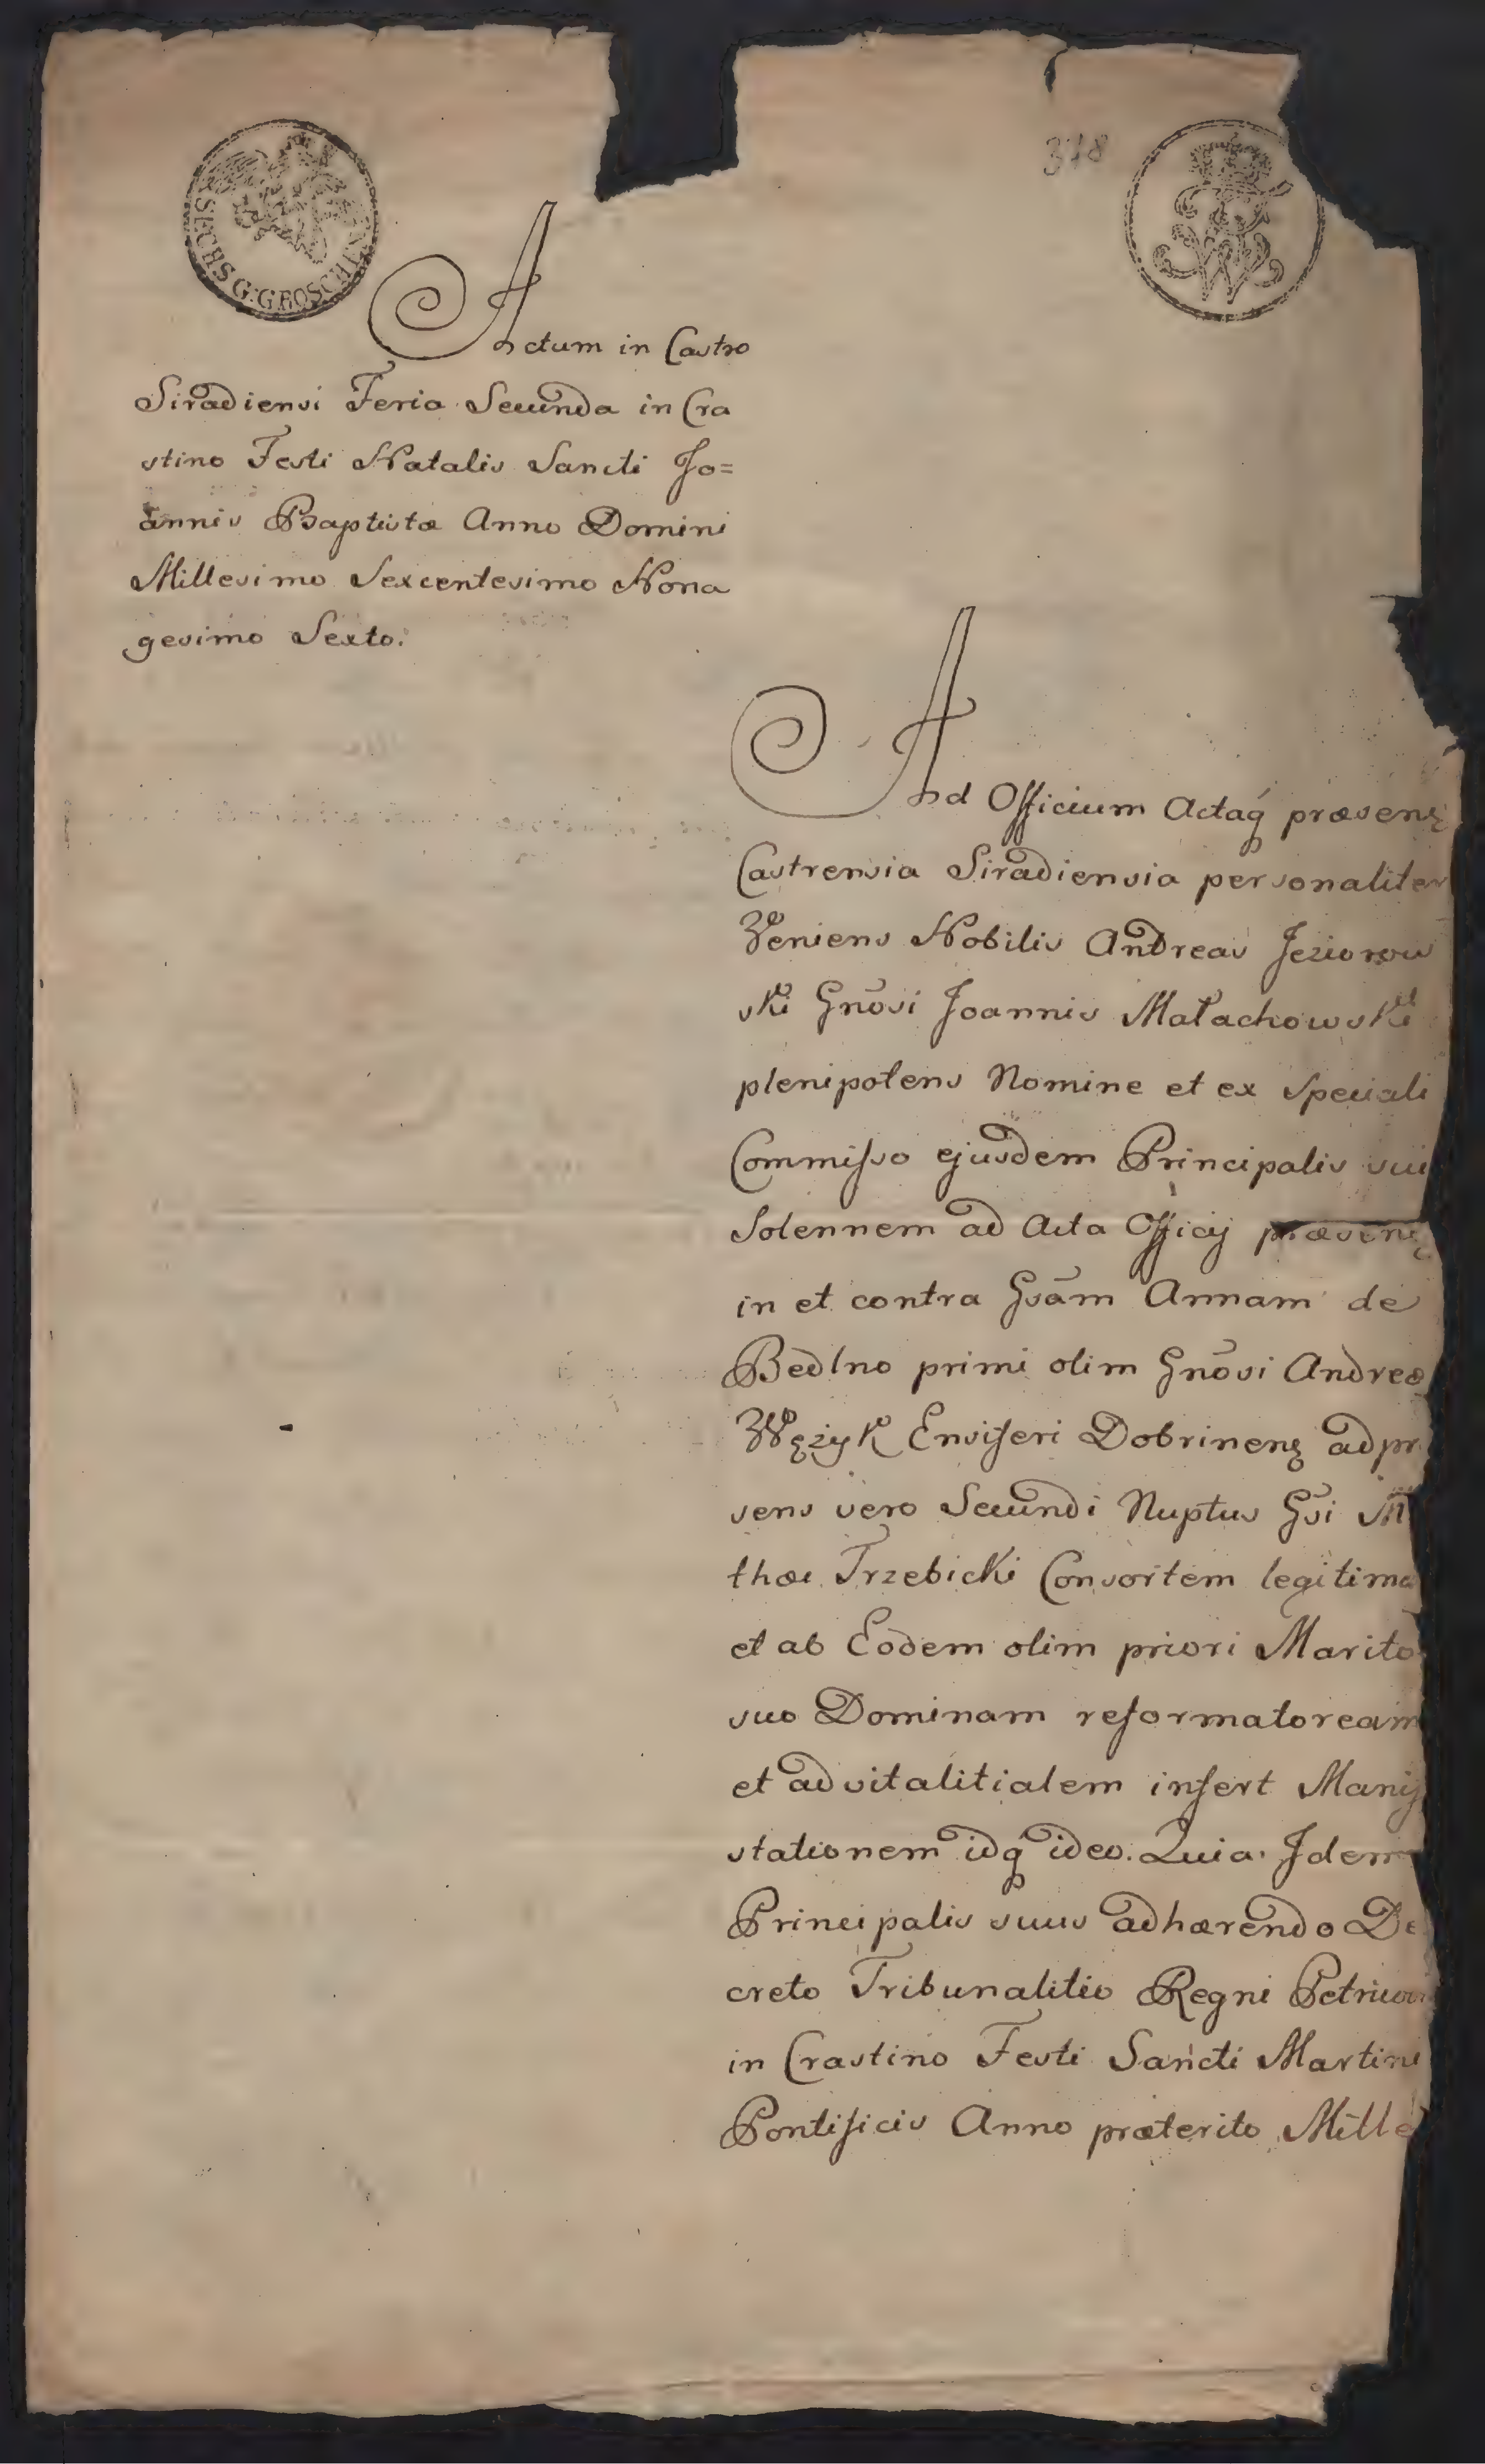 378
SECHS G: GROSCHEN
Actum in Castro
Siradiensi Feria Secunda in Cra
stino Festi Natalis Sancti Jo=
annis Baptistæ Anno Domini
Millesimo Sexcentesimo Nona
gesimo Sexto.
Ad Officium Actaq́ præsenȩ
Castrensia Siradiensia personaliter
Veniens Nobilis Andreas Jeziorow
ski Gnōsi Joannis Małachowski
plenipotens Nomine et ex Speciali
Commisso ejusdem Principalis sui
Solennem ad Acta Officij præsenȩ
in et contra Gsām Annam de
Bedlno primi olim Gnōsi Andreæ
Wężyk Ensiferi Dobrinenȩ ad pr
sens vero Secundi Nuptus Gsī M
thæi Trzebicki Consortem legitima
et ab Eodem olim priori Marito
suo Dominam reformatoream
et advitalitialem infert Manif
stationem idq́ ideo. Quia Idem
Principalis suus adhærendo De
creto Tribunalitio Regni Petricovi
in Crastino Festi Sancti Martini
Pontificis Anno præterito Mille